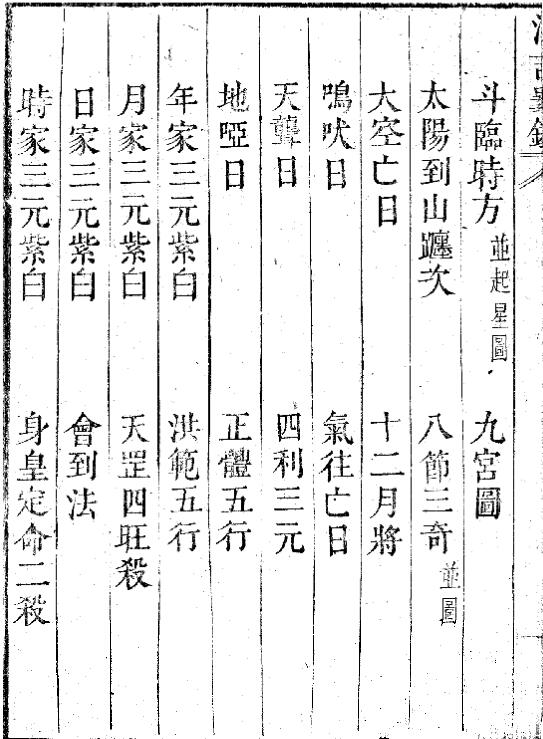 斗臨時方並起星圖 九宮圖
太陽到山躔次 八節三奇並圖
大空亡日 十二月將
鳴吠日 氣往亡日
天聾日 四利三元
地啞日 正體五行
年家三元紫白 洪範五行
月家三元紫白 天罡四旺殺
日家三元紫白 會到法
時家三元紫白 身皇定命二殺